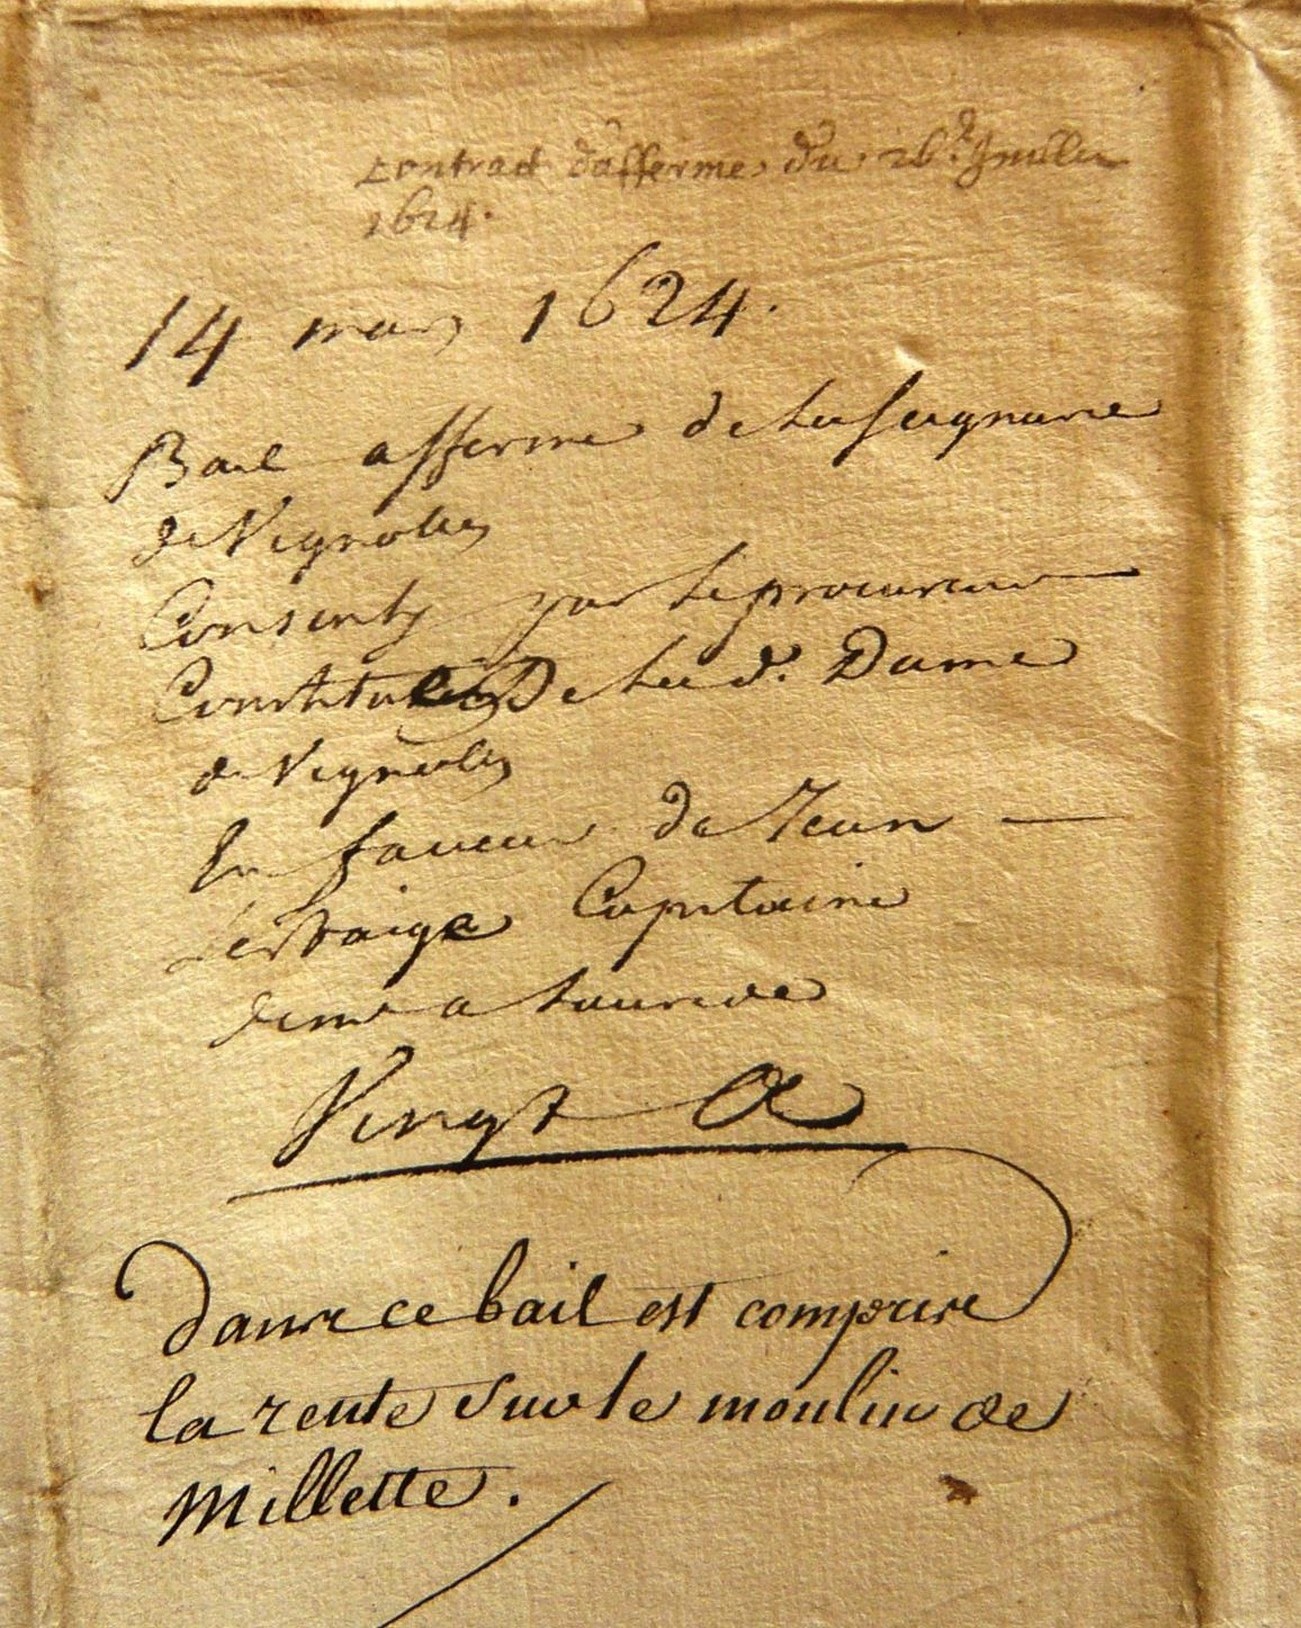 contract dafferme du 26.e Juillet
1624.
14 mars 1624.
Bail afferme de la seigneurie
de Vignolles
Consenty par le procureur
Constitué De la d. Dame
de Vignolles
En faveur de Jean —
Capitaine
Vingt
dans ce bail est comprise
la rente sur le moulin de
Millette.